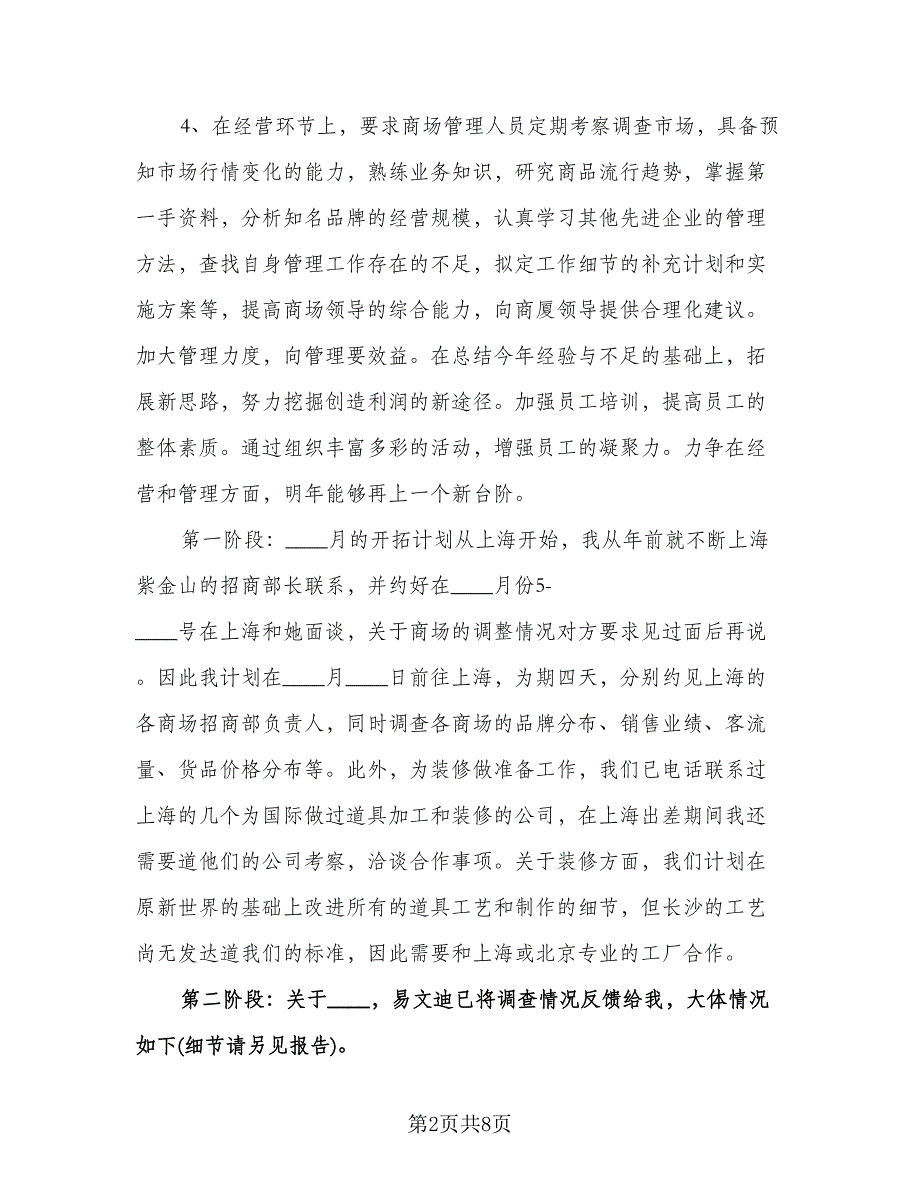 4、在经营环节上，要求商场管理人员定期考察调查市场，具备预
知市场行情变化的能力，熟练业务知识，研究商品流行趋势，掌握第
一手资料，分析知名品牌的经营规模，认真学习其他先进企业的管理
方法，查找自身管理工作存在的不足，拟定工作细节的补充计划和实
施方案等，提高商场领导的综合能力，向商厦领导提供合理化建议。
加大管理力度，向管理要效益。在总结今年经验与不足的基础上，拓
展新思路，努力挖掘创造利润的新途径。加强员工培训，提高员工的
整体素质。通过组织丰富多彩的活动，增强员工的凝聚力。力争在经
营和管理方面，明年能够再上一个新台阶。
第一阶段：____月的开拓计划从上海开始，我从年前就不断上海
紫金山的招商部长联系，并约好在____月份5-
____号在上海和她面谈，关于商场的调整情况对方要求见过面后再说
。因此我计划在____月____日前往上海，为期四天，分别约见上海的
各商场招商部负责人，同时调查各商场的品牌分布、销售业绩、客流
量、货品价格分布等。此外，为装修做准备工作，我们已电话联系过
上海的几个为国际做过道具加工和装修的公司，在上海出差期间我还
需要道他们的公司考察，洽谈合作事项。关于装修方面，我们计划在
原新世界的基础上改进所有的道具工艺和制作的细节，但长沙的工艺
尚无发达道我们的标准，因此需要和上海或北京专业的工厂合作。
第二阶段：关于____，易文迪已将调查情况反馈给我，大体情况
如下(细节请另见报告)。
第2页共8页